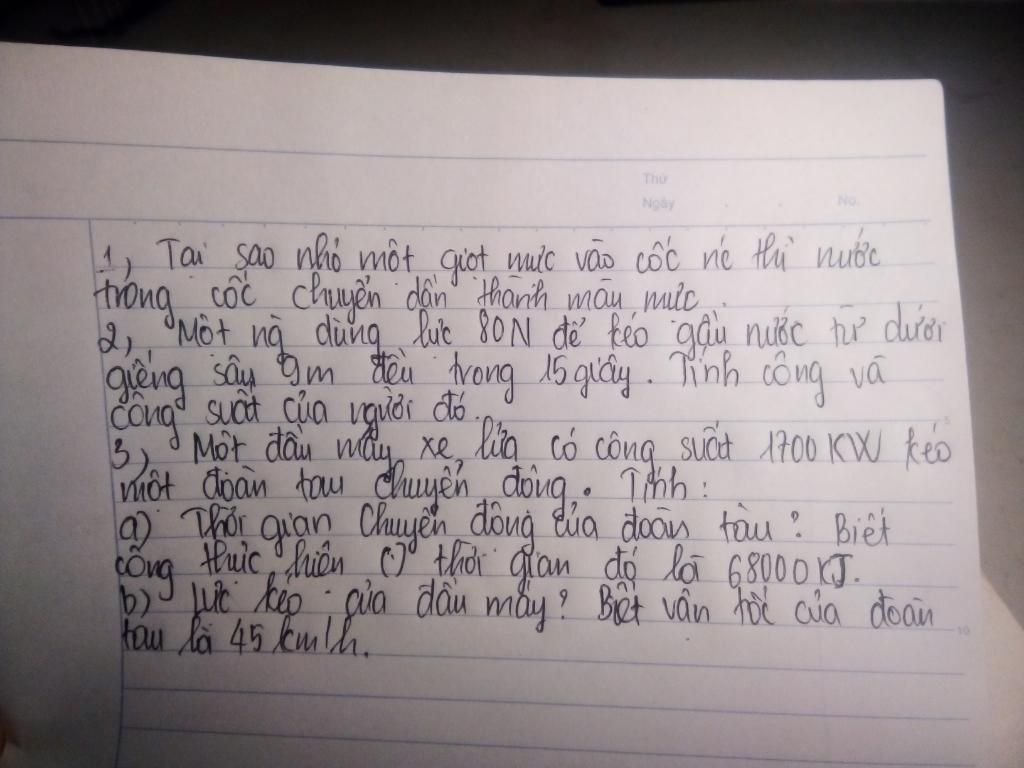 Thứ
Ngày
No.
1, Tại sao nhỏ một giọt mực vào cốc nc thì nước
trong cốc chuyển dần thành màu mực.
2, Một ng dùng lực 80N để kéo gầu nước từ dưới
giếng sâu 9m đều trong 15 giây. Tính công và
công suất của người đó.
3, Một đầu máy xe lửa có công suất 1700 KW kéo
một đoàn tau chuyển động. Tính:
a) Thời gian chuyển động của đoàn tàu? Biết
công thực hiện () thời gian đó là 68000KJ.
b) Lực kéo của đầu máy? Biết vận tốc của đoàn
tau là 45 km/h.
10